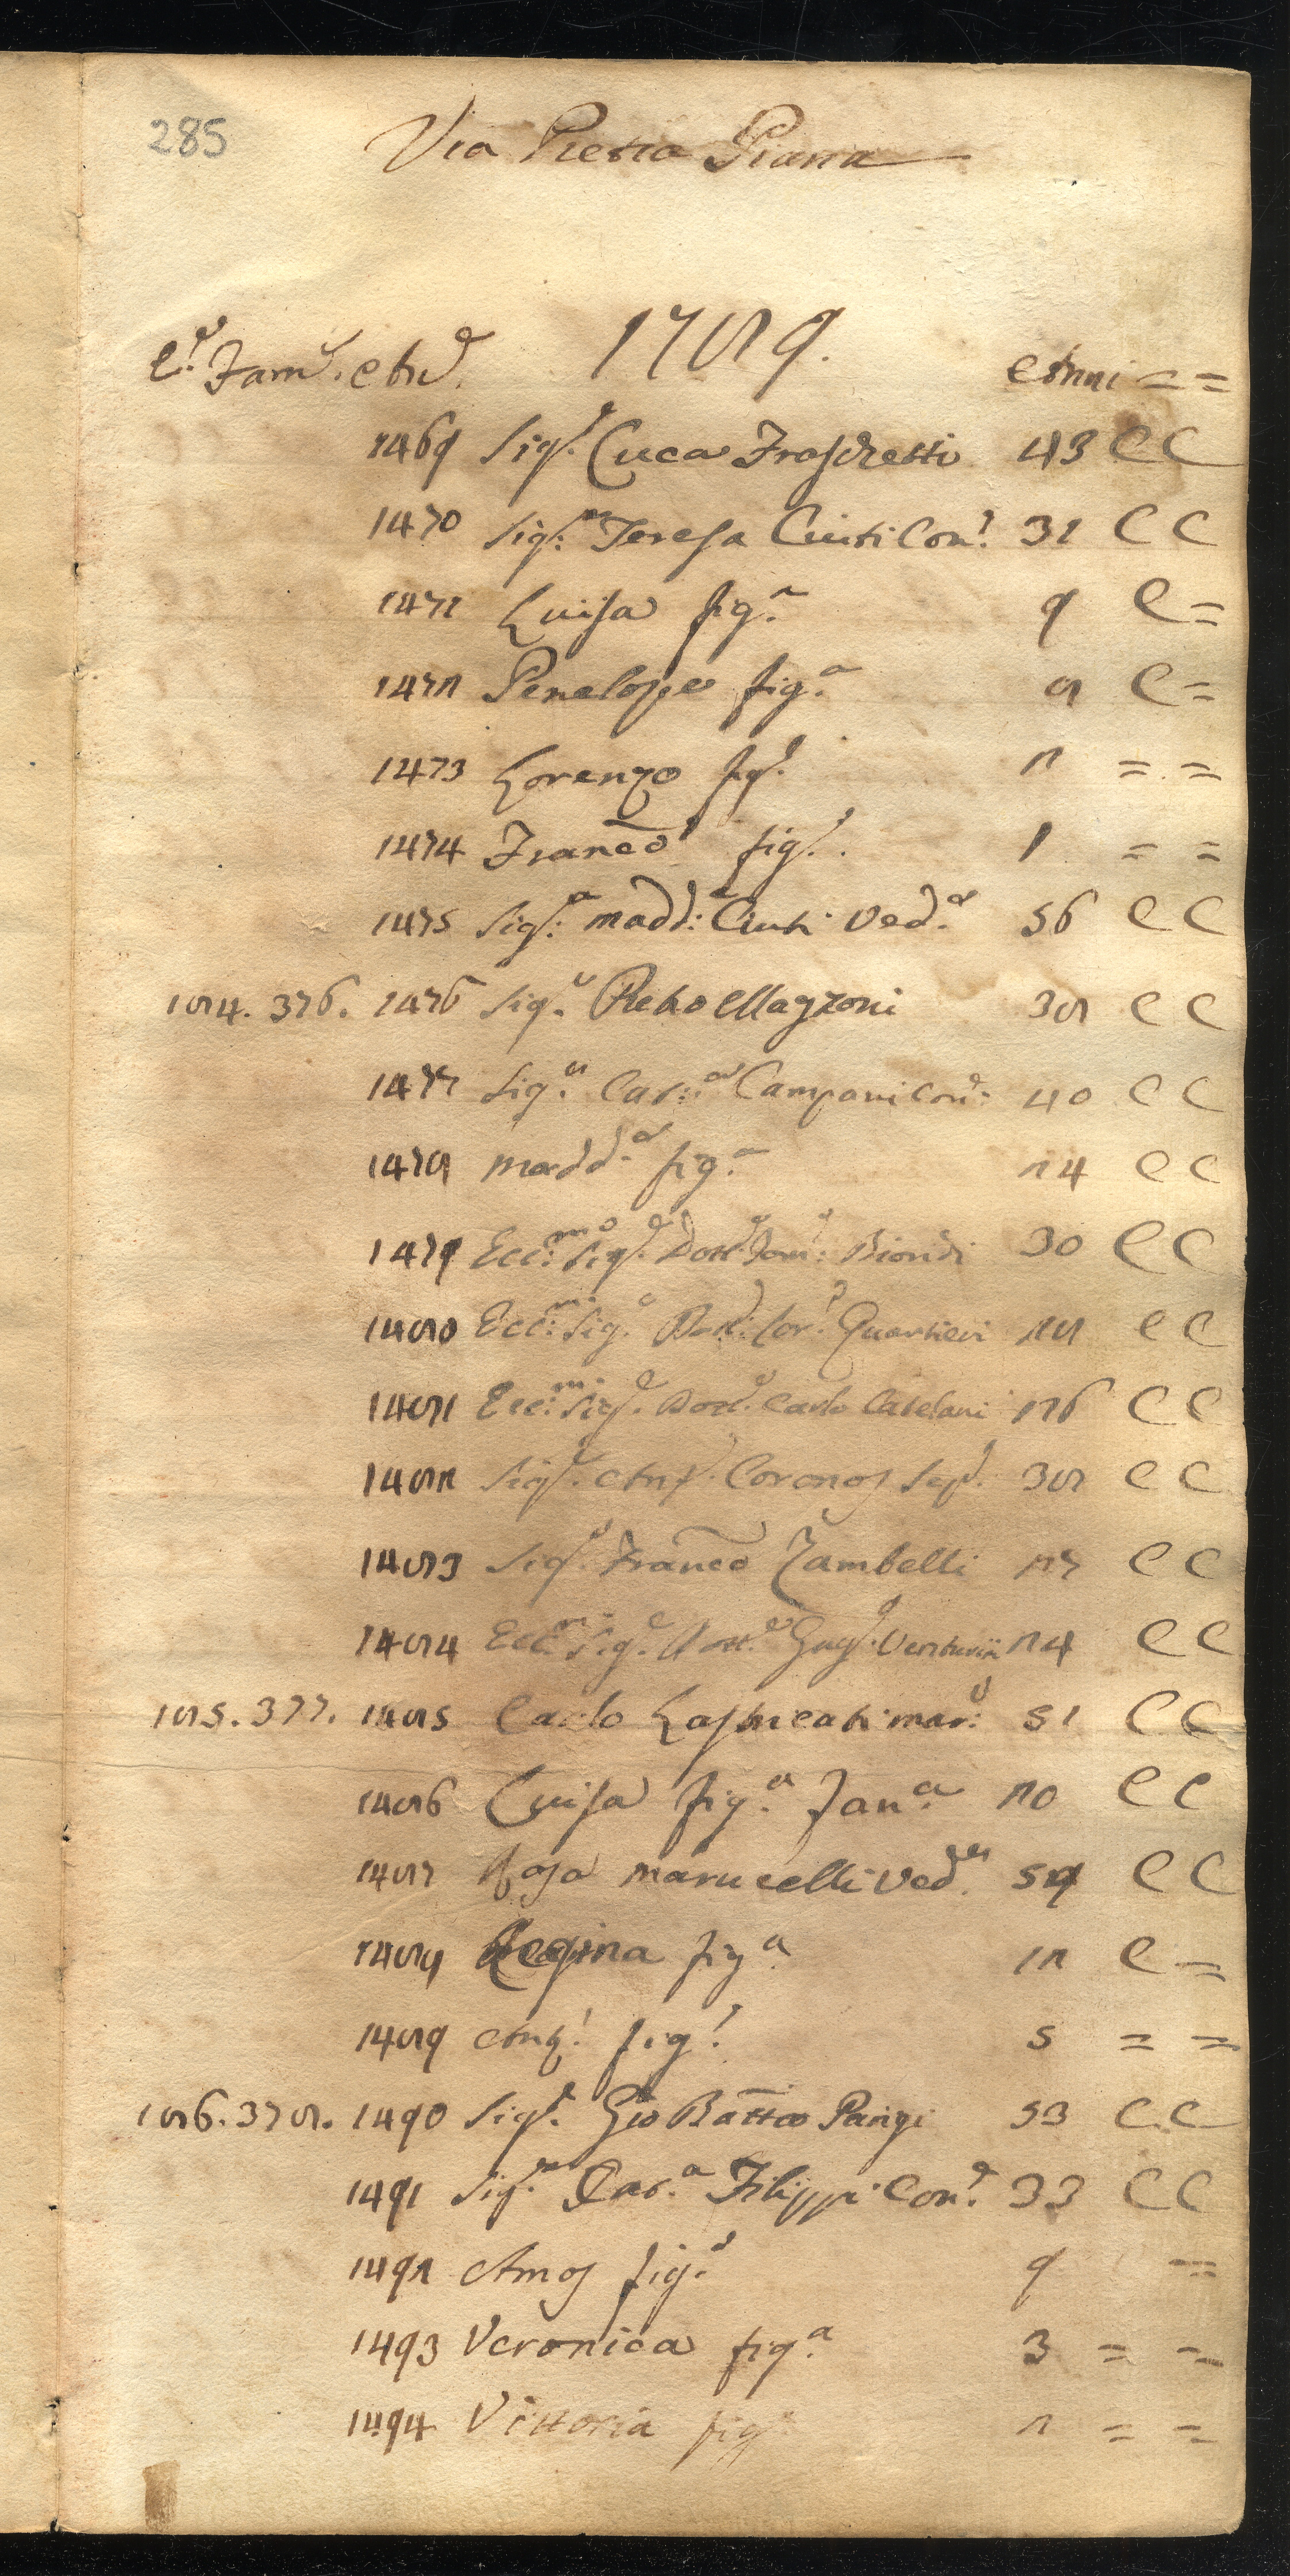 285
Via Pietra Piana
1789.
C.e Fam.e An.e Anni = =
1469 Sig.e Luca Fraschetti 43 C C
1470 Sig.ra Teresa Ciuti Con.e 31 C C
1471 Luisa fig.a 9 C =
1472 Penelope fig.a 8 C =
1473 Lorenzo fig.o 2 = =
1474 Franco fig.o 1 = =
1475 Sig.ra Madd.a Ciuti Ved.a 56 C C
184. 376. 1476 Sig.e Pietro Mazzoni 38 C C
1477 Sig.a Cat.a Campani Con.e 40 C C
1478 Madd.a fig.a 24 C C
1479 Ecc.mo Sig.e Dott.e Dom.o Biondi 30 C C
1480 Ecc.mo Sig.e Dott.e Lor.o Quartieri 28 C C
1481 Ecc.mo Sig.e Dott.e Carlo Catelani 26 C C
1482 Sig.e Ant.o 38 C C
1483 Sig.e Franco Zambelli 27 C C
1484 Ecc.mo Sig.e Dott.e Gug.o Venturini 24 C C
185. 377. 1485 Carlo Lastricati mar.o 51 C C
1486 Luisa fig.a Fan.a 20 C C
1487 Rosa Marucelli Ved.a 59 C C
1488 Regina fig.a 12 C =
1489 Ant.o fig.o 5 = =
186. 378. 1490 Sig.e Gio Batta Pangi 53 C C
1491 Sig.ra Cat.a Filippi Con.e 33 C C
1492 Amos fig.o 9 =
1493 Veronica fig.a 3 = =
1494 Vittoria fig.a 2 = =